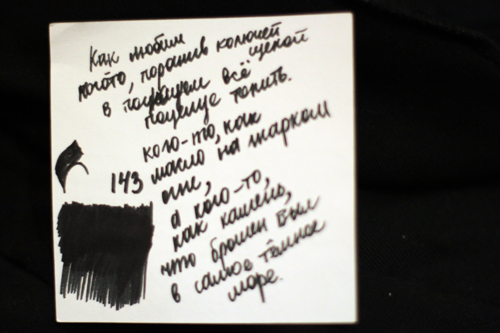 Как любим
когото, поранив колючей
щекой
в всё
поцелуе топить.
кого-то, как
масло на жарком
143 огне,
а кого-то,
как камень,
что брошен был
в самое тёмное
море.